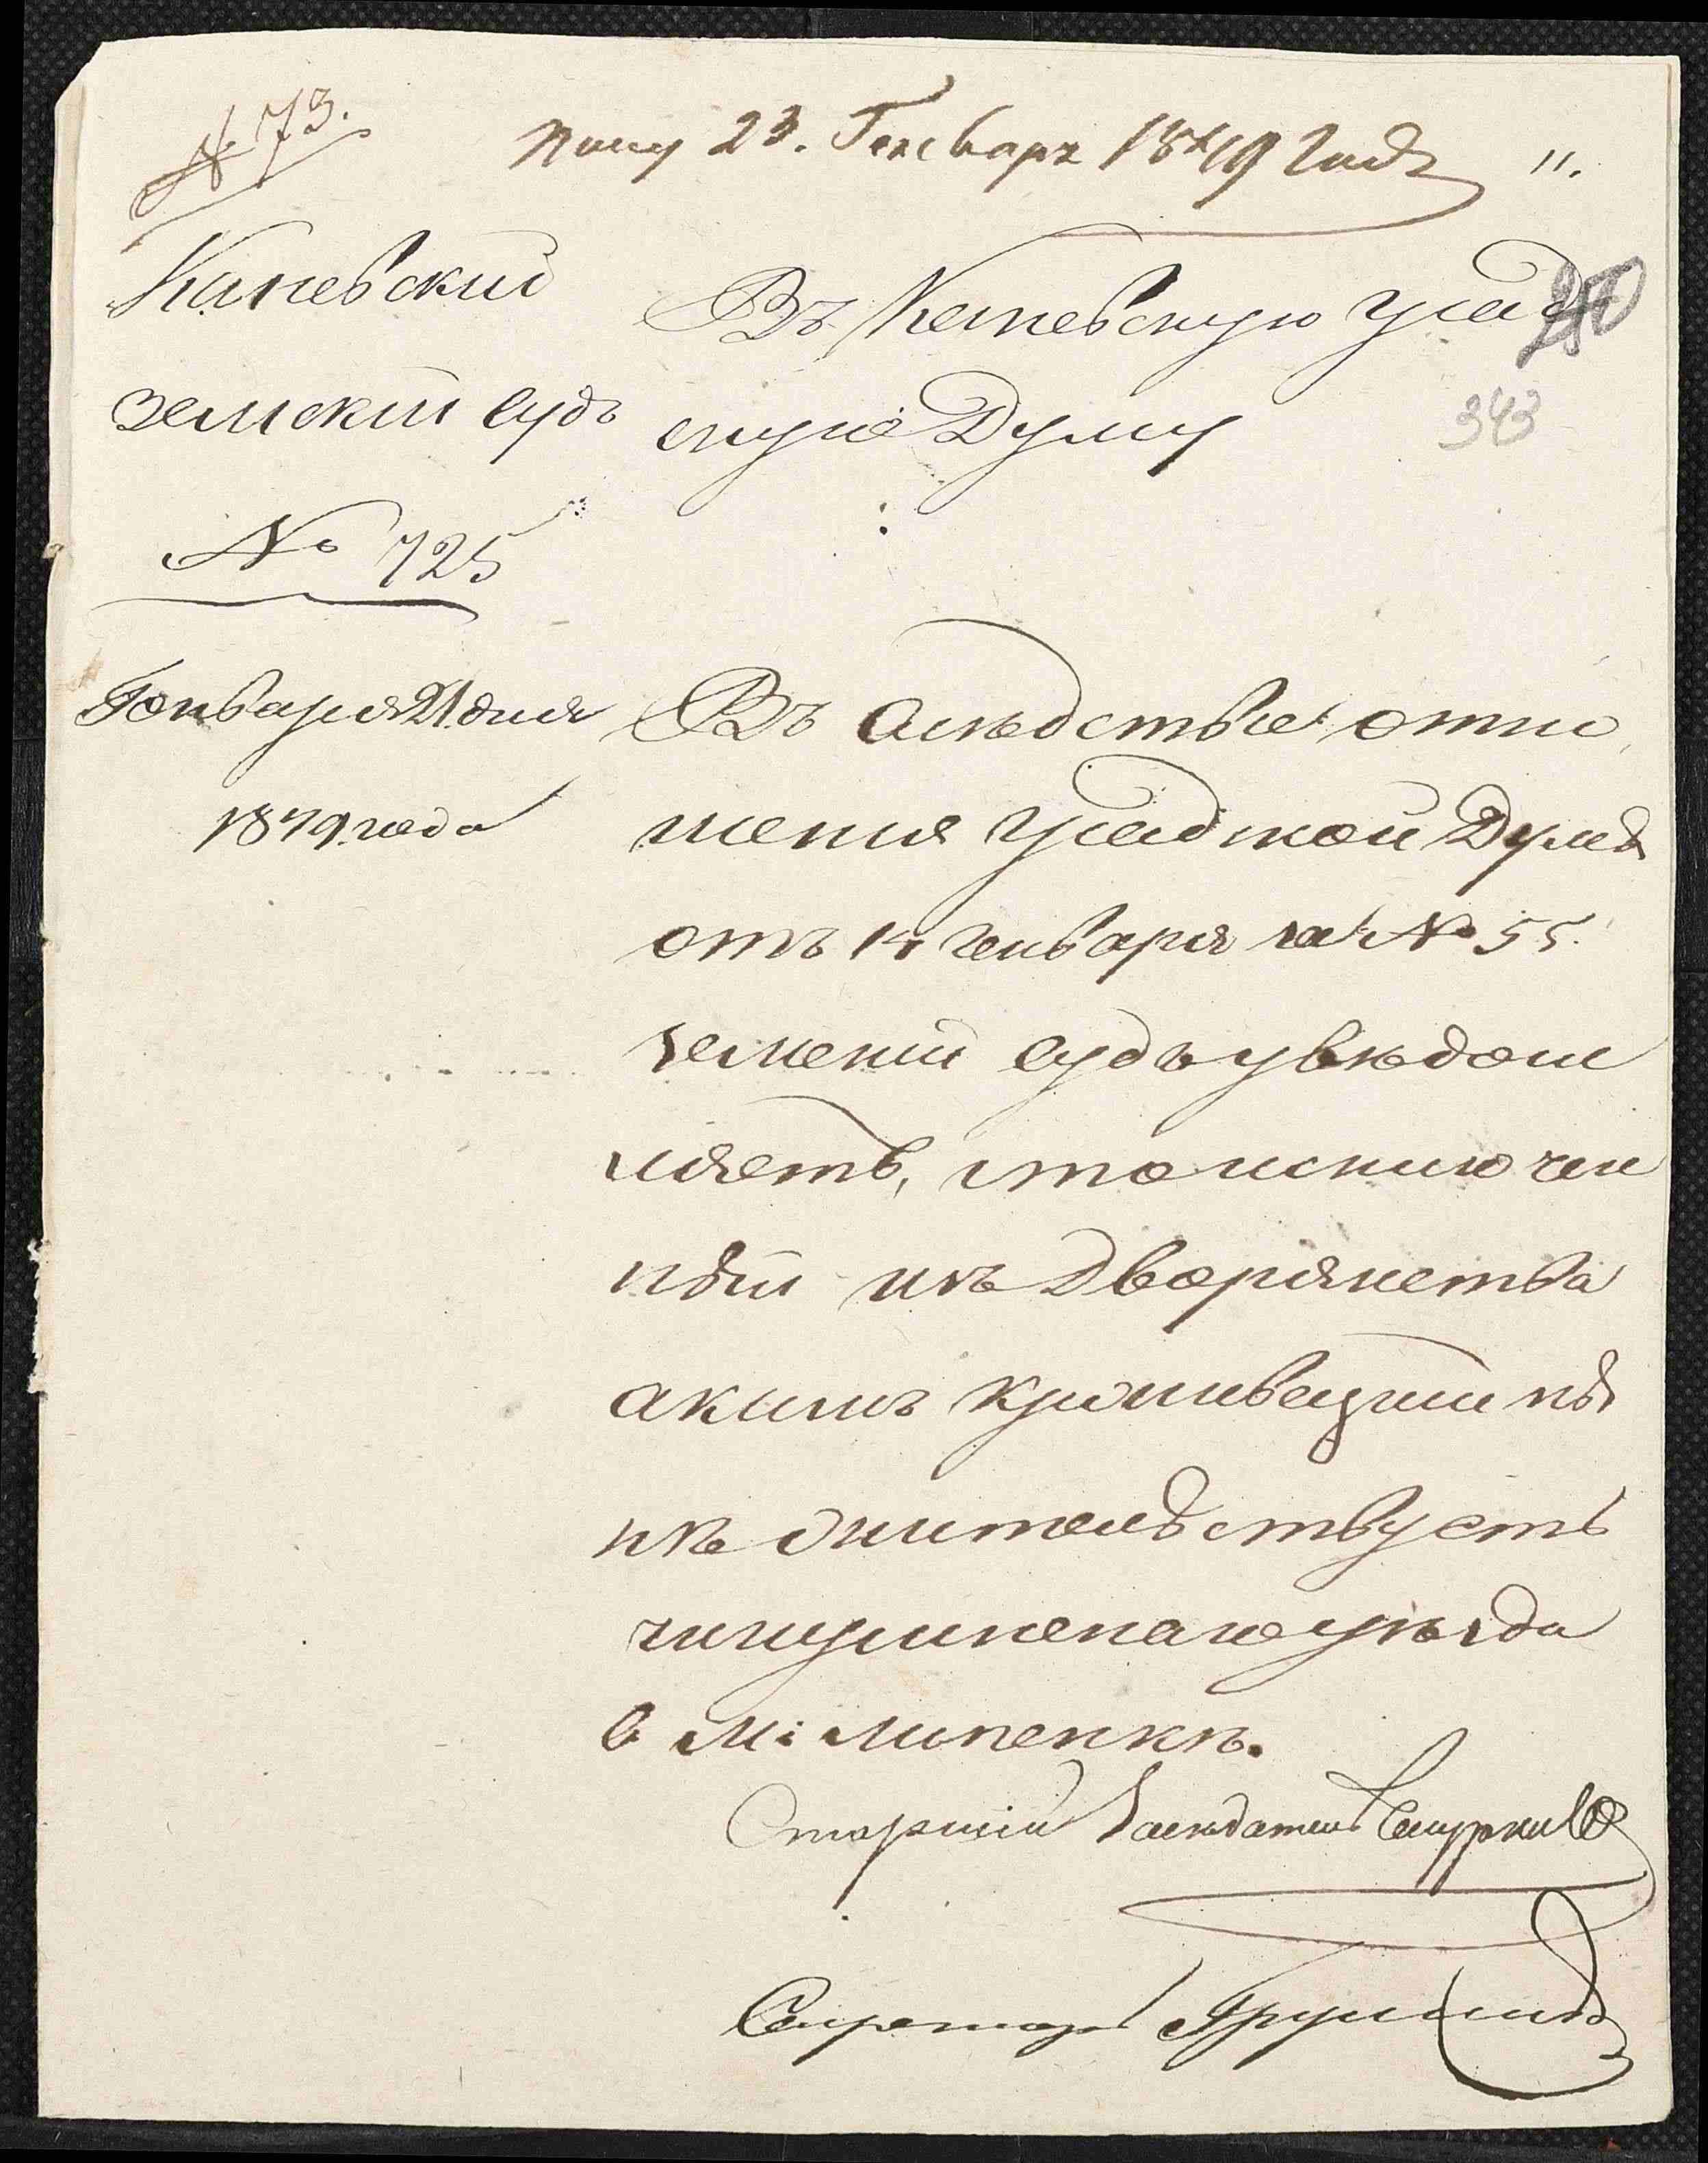 № 73.
Полу 23. Генваря 1849 Года
11.
Каневский
земский судъ
№ 725
Генваря 21 дня
1849 года
250
343
Въ Каневскую град
скую Думу
Въ следствие отно
шения градской Думы
отъ 14 генваря за № 55.
земский судъ увѣдом
ляетъ, что исключен
ный изъ дворянства
акимъ крипивецкий ны
нѣ жительствуетъ
чигиринскаго уѣзда
в м: липенкѣ.
Старший Заседатель
Секретарь